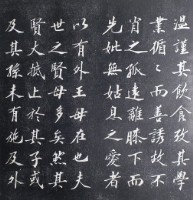 温謹其飲食教其學
業循々而善誘故不
肖之孤違離膝下而
先妣無姑息之愛者
以有外王母在也夫
世之賢母多矣然其
賢大抵止於其子或
及其孫未有施及外